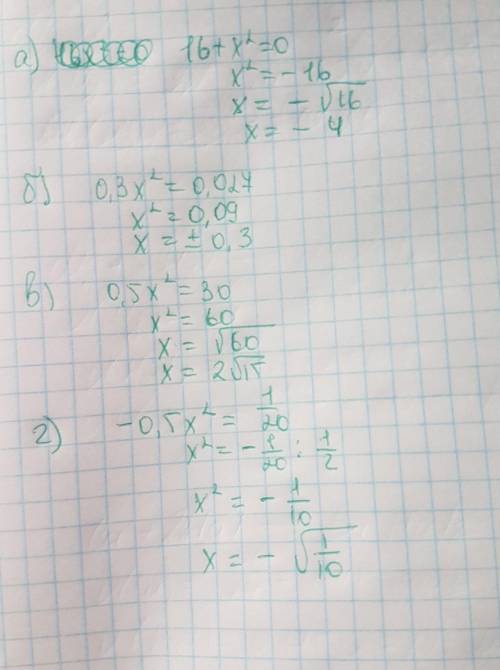 а) 16+x²=0
x²=-16
x= -√16
x= - 4
б) 0,3x²=0,027
x²=0,09
x = ± 0,3
в) 0,5x²=30
x²= 60
x = √60
x = 2√15
г) -0,5x²= 1/20
x²= - 1/20 : 1/2
x² = - 1/10
x = - √1/10